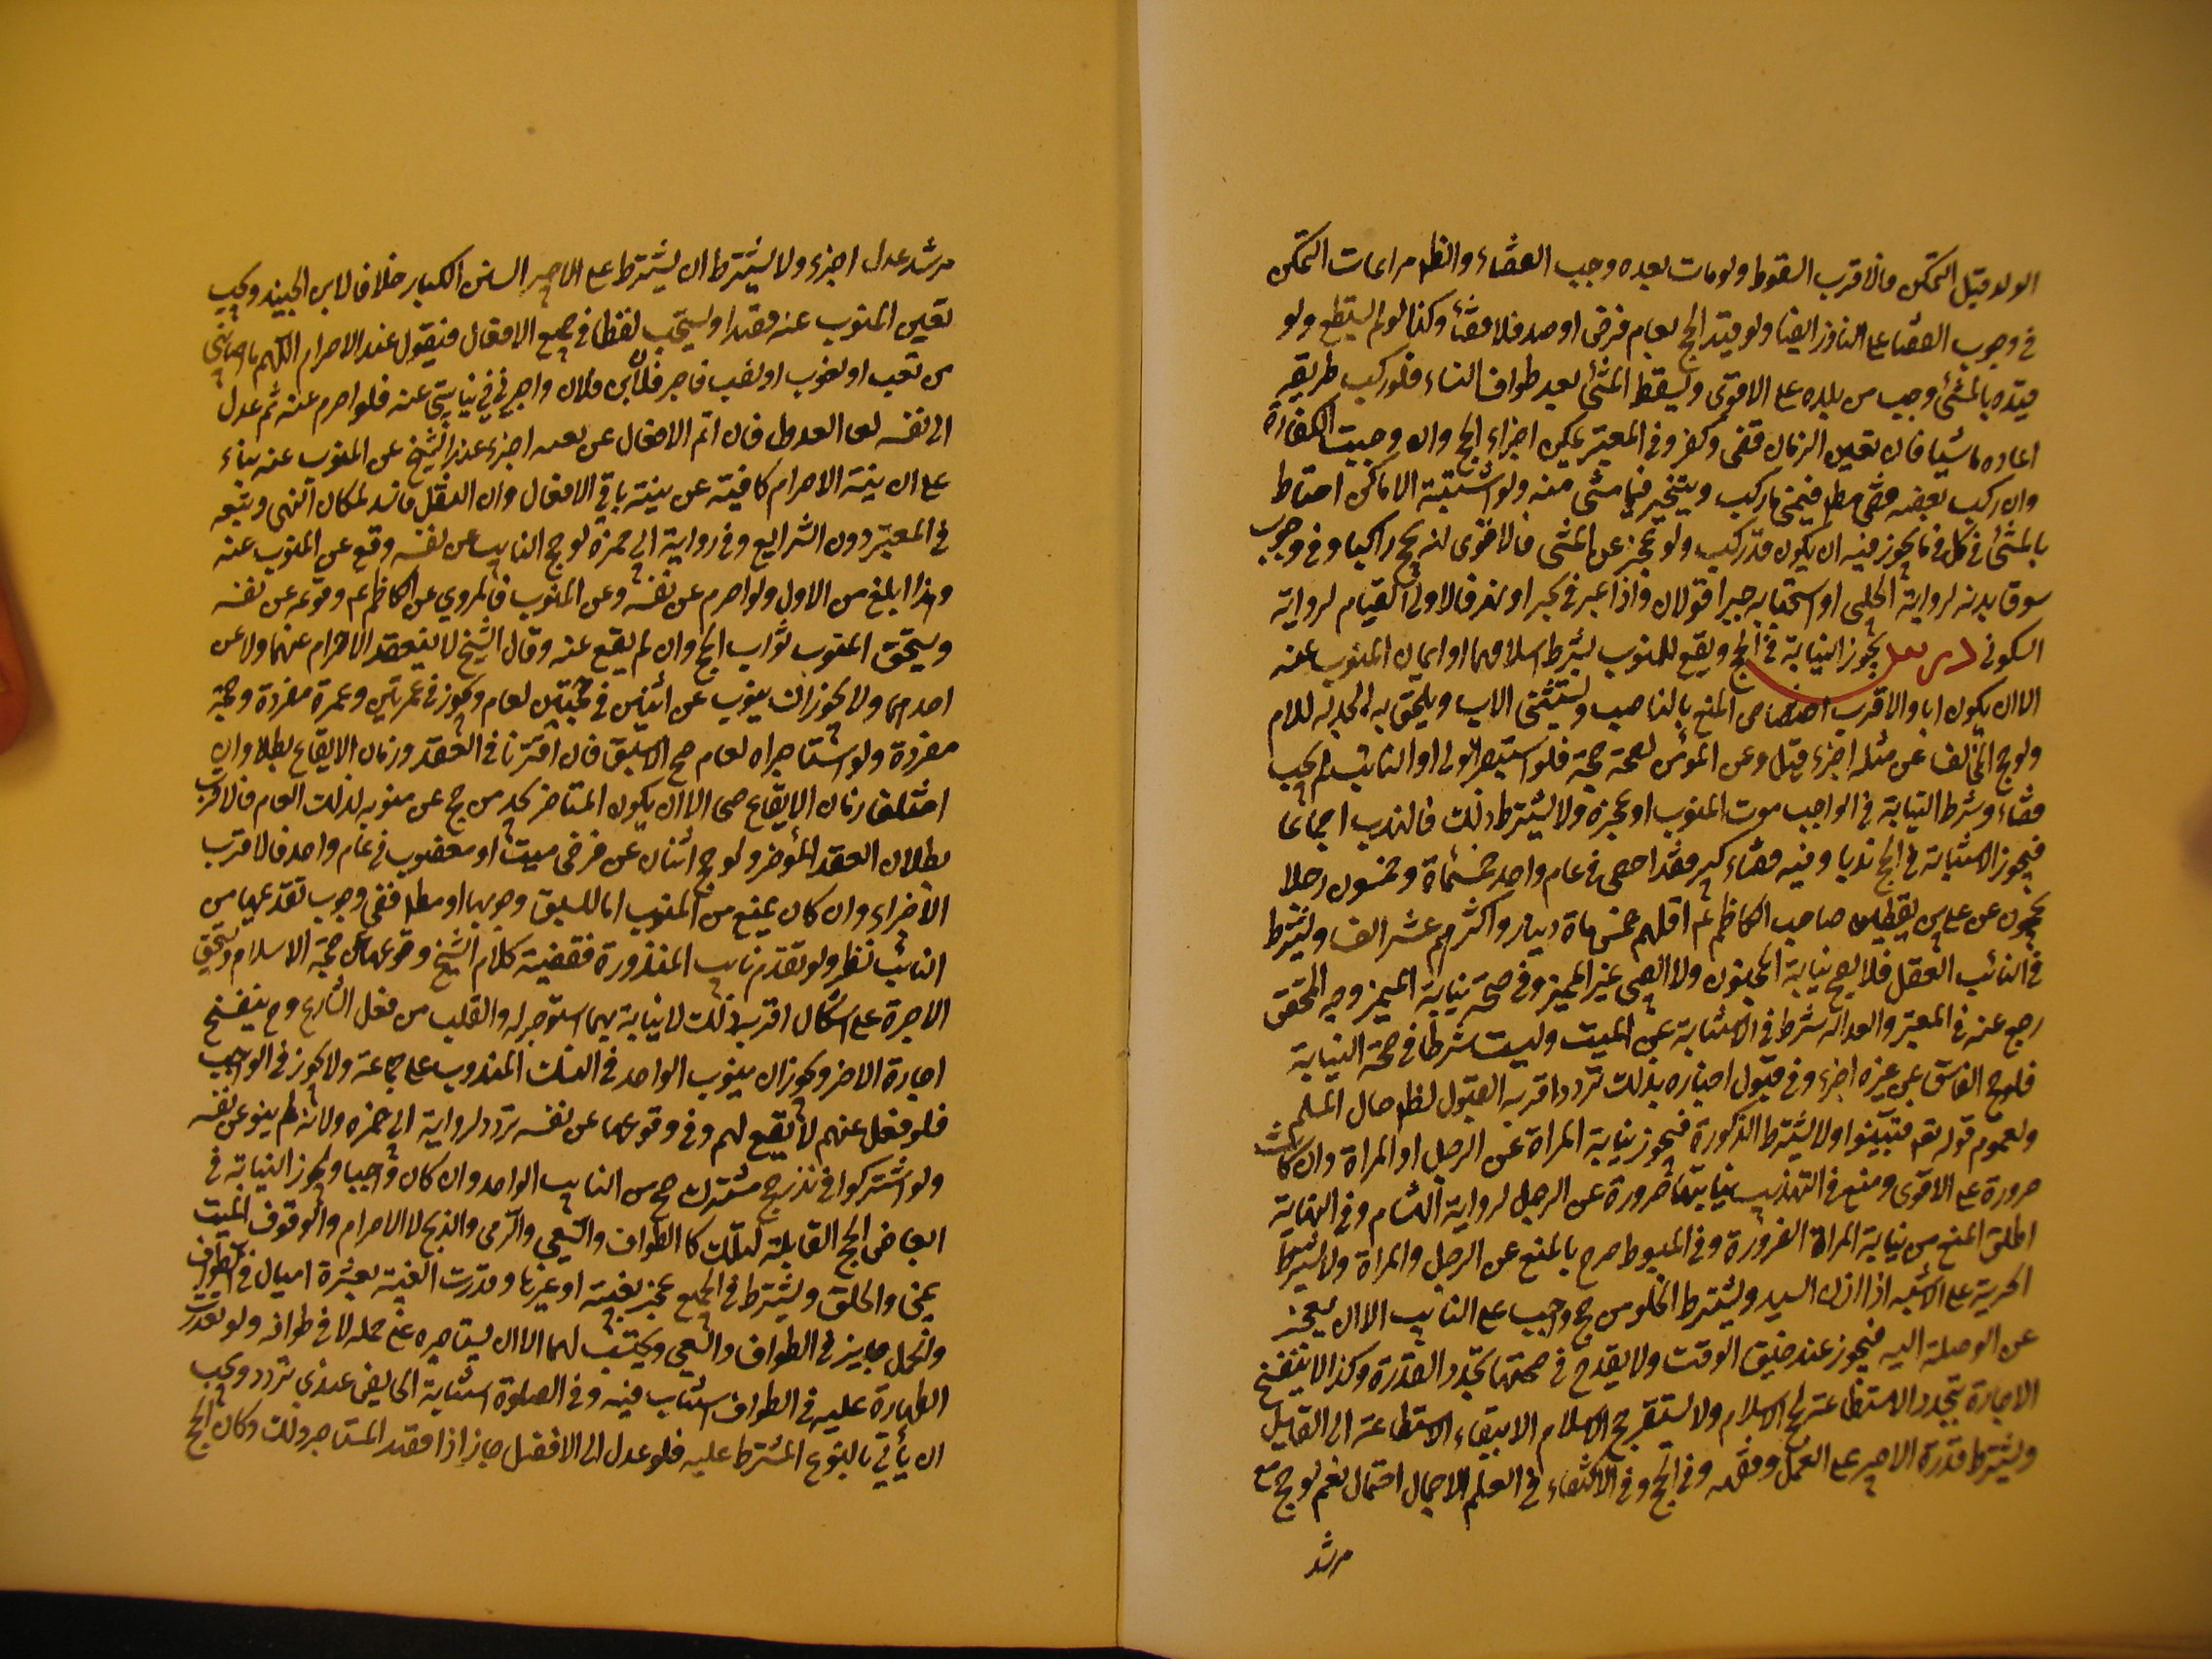 الولد قبل التمكن فالاقرب السقوط ولو مات بعده وجب القضاء والظ مراعات التمكن
في وجوب القضا على الناذر ايضا ولو قيد الحج بعام فرض او صد فلا قضأ وكذا لو لم يستطع ولو
قيده بالمشئ وجب من بلده على الاقوى ويسقط المشئ بعد طواف النساء فلو ركب طريقه
اعاده ماشيا فان تعين الزمان قضى وكفر وفي المعتبر يمكن اجزاء الحج وان وجبت الكفارة
وان ركب بعضه قضى مط فيمشي ما ركب ويتخير فيما مشى منه ولو اشتبهت الاماكن احتاط
بالمشئ في كل في ما يجوز فيه ان يكون قد ركب ولو عجز عن المشى فالاقوى انه يحج راكبا وفي وجوب
سوق بدنه لرواية الحلبى او استحبابه جبرا قولان واذا عبر في بحر او نهر فالاولى القيام لرواية
السكونى درس يجوز النيابة في الحج ويقع للمنوب بشرط اسلامهما او ايمان المنوب عنه
الا ان يكون ابا والاقرب اختصاص المنع بالناصب ويستثنى الاب ويلحق به الجد له لا للام
ولو حج المخالف عن مثله اجزء قيل وعن المؤمن لصحة حجه فلو استبصر الولى او النائب لم يجب
قضاء وشرط النيابة في الواجب موت المنوب او عجزه ولا يشترط ذلك فالندب اجماعا
فيجوز الاستنابة في الحج ندبا وفيه فضاء كبير فقد احصى في عام واحد خمسمأة وخمسون رجلا
يحجون عن على بن يقطين صاحب الكاظم ع اقلهم خمس ماة دينار واكثرهم عشر الف ويشترط
في النائب العقل فلا يصح نيابة المجنون ولا الصبى غير المميز وفي صحة نيابة المميز وجه للمحقق
رجع عنه في المعتبر والعدالة شرط في الاستنابة عن الميت وليست شرطا في صحة النيابة
فلو حج الفاسق عن غيره اجزء وفي قبول اخباره بذلك تردد اقربه القبول لظ حال المسلم
ولعموم قوله تع فتبينوا ولا يشترط الذكورة فيجوز نيابة المراة عن الرجل او المراة وان كانت
صرورة على الاقوى ومنع في التهذيب نيابتها صرورة عن الرجل لرواية الشام وفي النهاية
اطلق المنع من نيابة المراة الصرورة وفي المبسوط صرح بالمنع عن الرجل والمراة ولا يشترط
الحرية على الاشبه اذا اذن السيد ويشترط الخلو من حج واجب على النايب الا ان يعجز
عن الوصلة اليه فيجوز عند ضيق الوقت ولا يقدح في صحتها تجدد القدرة وكذا لا ينفسخ
الاجارة بتجدد الاستطاعة لحج الاسلام ولا يستقر حج الاسلام الا ببقاء الاستطاعة الى القابل
ويشترط قدرة الاجير على العمل وفقهه وفي الحج وفي الاكتفاء في العلم الاجمال احتمال نعم لو حج مع
مرشد
مرشد عدل اجزء ولا يشترط ان يشترط على الاجير السنن الكبار خلافا لابن الجنيد ويجب
تعيين المنوب عنه قصدا ويستحب لفظا في جميع الافعال فيقول عند الاحرام اللهم ما اصابنى
من تعب او لغوب او نصب فاجر فلان بن فلان واجرنى في نيابتى عنه فلو احرم عنه ثم عدل
الى نفسه لغى العدول فان اتم الافعال عن نفسه اجزء عند الشيخ عن المنوب عنه بناء
على ان نية الاحرام كافية عن نية باقى الافعال وان النقل فاسد لمكان النهى وتبعه
في المعتبر دون الشرايع وفي رواية ابى حمزة لو حج النايب عن نفسه وقع عن المنوب عنه
وهذا ابلغ من الاول ولو احرم عن نفسه وعن المنوب فالمروي عن الكاظم ع وقوعه عن نفسه
ويستحق المنوب ثواب الحج وان لم يقع عنه وقال الشيخ لا ينعقد الاحرام عنهما ولا عن
احدهما ولا يجوز ان ينوب عن اثنين في حجتين لعام ويجوز في عمرتين وعمرة مفردة وحجة
مفردة ولو استاجراه لعام صح الاسبق فان اقترنا في العقد وزمان الايقاع بطلا وان
اختلف زمان الايقاع صح الا ان يكون المتاخر يجد من حج عن منوبه لذلك العام فالاقرب
بطلان العقد المؤخر ولو حج اثنان عن فرض ميت او معضوب في عام واحد فالاقرب
الاجزاء وان كان يمنع من المنوب اما للسبق وجوبها او مط ففي وجوب تقدمهما من
النائب نظر ولو تقدم نايب المنذورة فقضية كلام الشيخ وقوعها عن حجة الاسلام ويستحق
الاجرة على اشكال اقربه ذلك لاتيانه بما استوجر له والقلب من فعل الشارع وح ينفسخ
اجارة الاخر ويجوز ان ينوب الواحد في النسك المندوب على جماعة ولا يجوز في الواجب
فلو فعل عنهم لا يقع لهم وفي وقوعها عن نفسه تردد لرواية ابى حمزه ولانه لم ينو عن نفسه
ولو اشتركوا في نذر حج مشترك صح من النايب الواحد وان كان واجبا ويجوز النيابة في
ابعاض الحج القابلة لذلك كالطواف والسعى والرمى والذبح لا الاحرام والوقوف المبيت
بمنى والحلق ويشترط في الجميع عجز بغيبته او غيرها وقدرت الغيبة بعشرة اميال في الطواف
والحمل جايز في الطواف والسعى ويحتسب لهما الا ان يستاجره على حمله لا في طوافه ولو تعذرت
الطهارة عليه في الطواف استناب فيه وفي الصلوة استنابة الحايض عندى تردد ويجب
ان يأتى بالنوع المشترط عليه فلو عدل الى الافضل جاز اذا قصد المستاجر ذلك وكان الحج